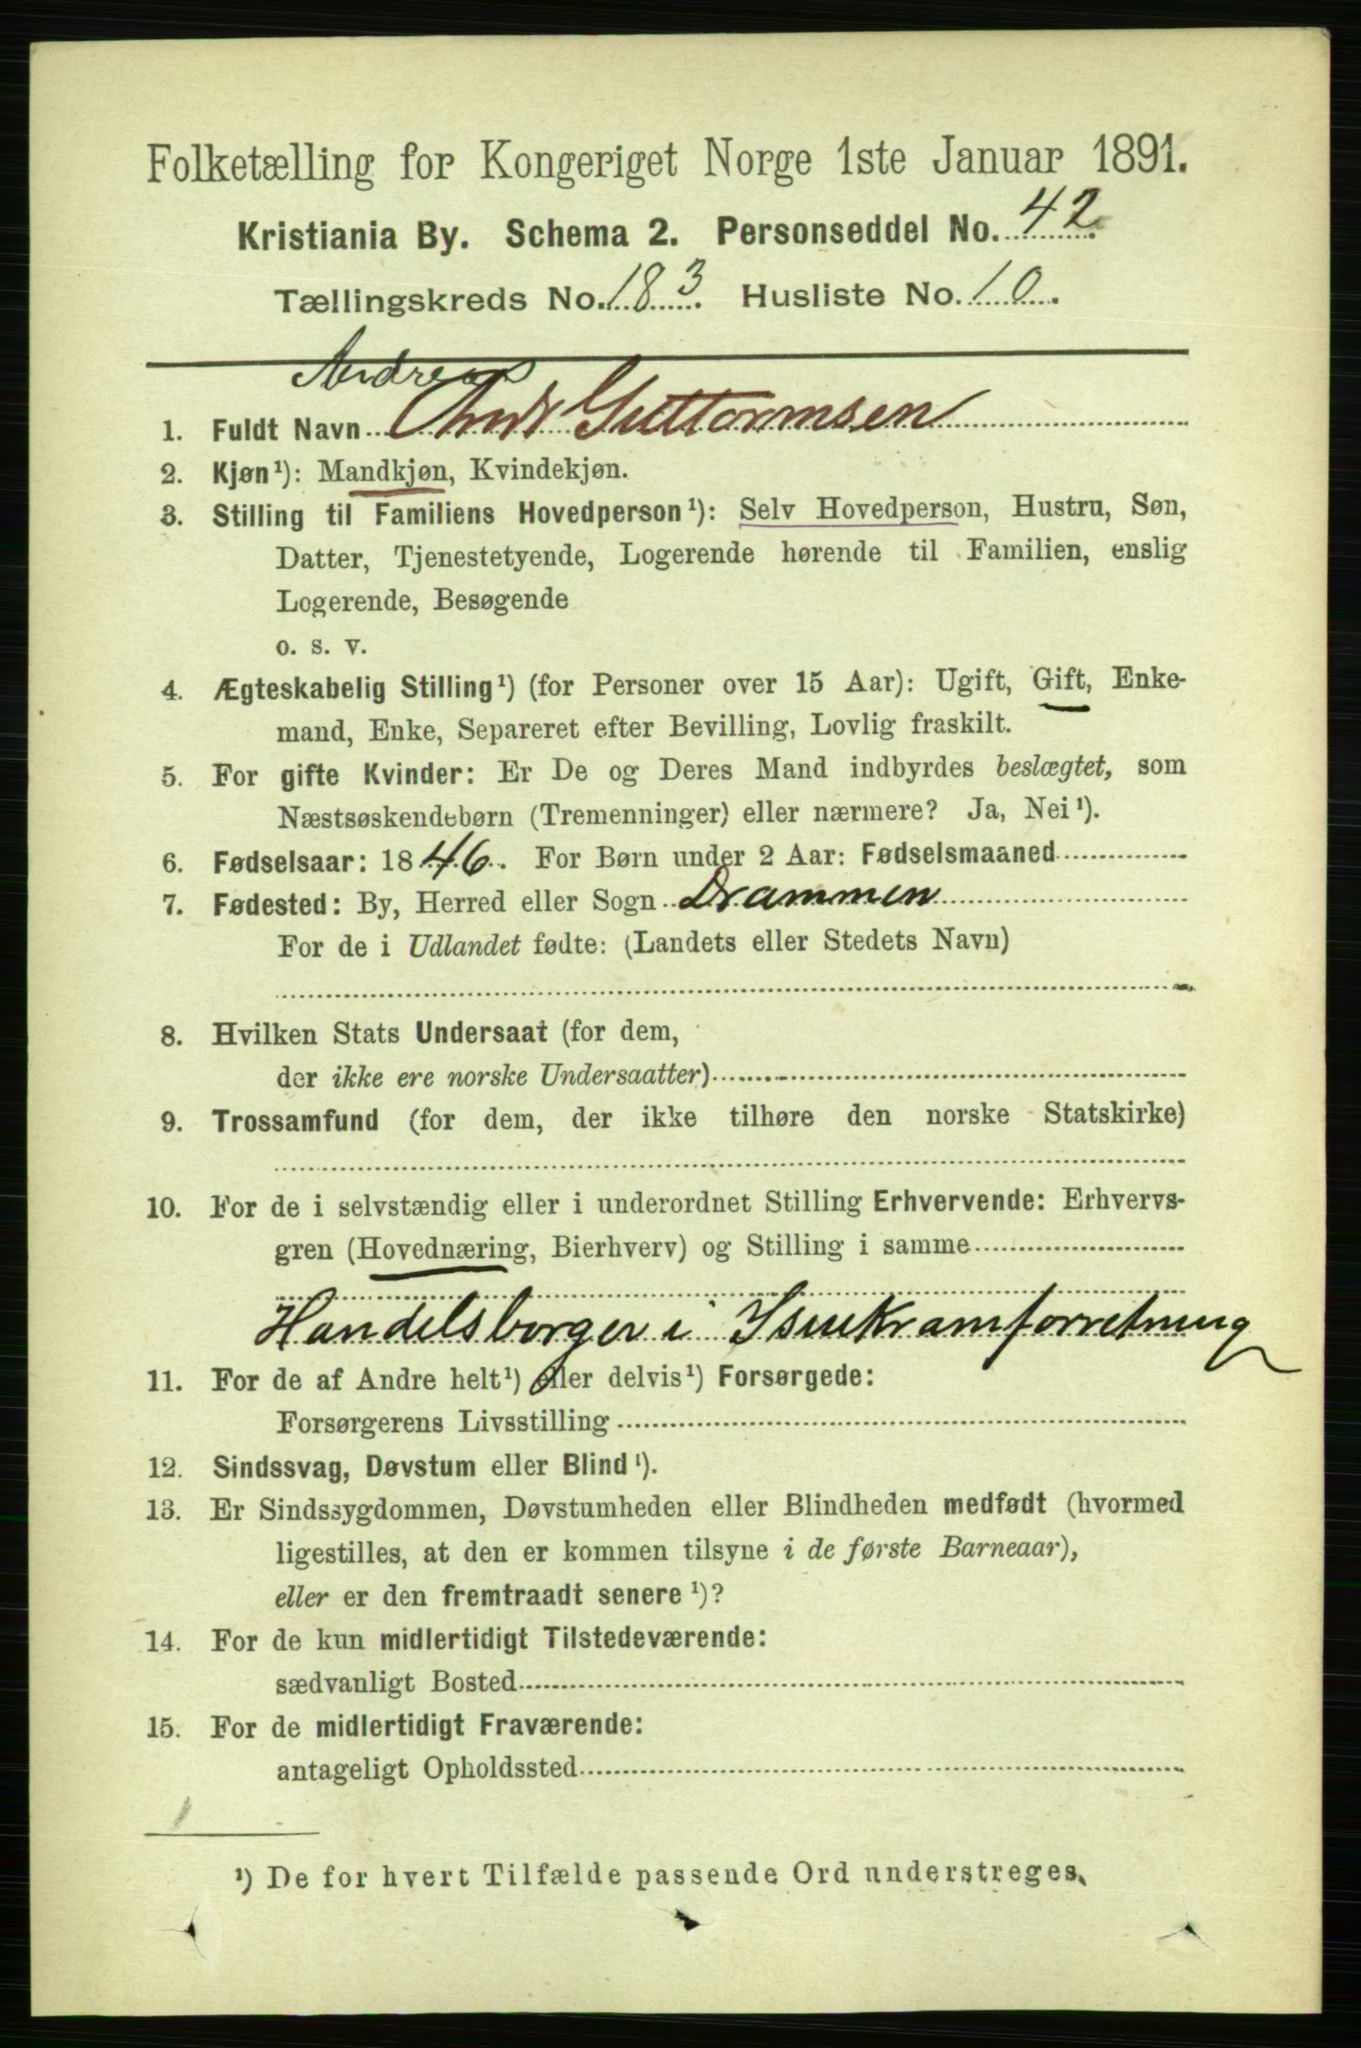 Folketælling for Kongeriget Norge 1ste Januar 1891.
Kristiania By. Schema 2. Personseddel No. 42.
Tællingskreds No. 183. Husliste No. 10.
Andreas
1. Fuldt Navn Andr Guttormsen
2. Kjøn¹): Mandkjøn, Kvindekjøn.
3. Stilling til Familiens Hovedperson¹): Selv Hovedperson, Hustru, Søn,
Datter, Tjenestetyende, Logerende hørende til Familien, enslig
Logerende, Besøgende
o. s. v.
4. Ægteskabelig Stilling¹) (for Personer over 15 Aar): Ugift, Gift, Enke-
mand, Enke, Separeret efter Bevilling, Lovlig fraskilt.
5. For gifte Kvinder: Er De og Deres Mand indbyrdes beslægtet, som
Næstsøskendebørn (Tremenninger) eller nærmere? Ja, Nei¹).
6. Fødselsaar: 1846. For Børn under 2 Aar: Fødselsmaaned
7. Fødested: By, Herred eller Sogn Drammen
For de i Udlandet fødte: (Landets eller Stedets Navn)
8. Hvilken Stats Undersaat (for dem,
der ikke ere norske Undersaatter)
9. Trossamfund (for dem, der ikke tilhøre den norske Statskirke)
10. For de i selvstændig eller i underordnet Stilling Erhvervende: Erhvervs-
gren (Hovednæring, Bierhverv) og Stilling i samme
Handelsborger i Isenkramforretning
11. For de af Andre helt¹) eller delvis¹) Forsørgede:
Forsørgerens Livsstilling
12. Sindssvag, Døvstum eller Blind¹).
13. Er Sindssygdommen, Døvstumheden eller Blindheden medfødt (hvormed
ligestilles, at den er kommen tilsyne i de første Barneaar),
eller er den fremtraadt senere¹)?
14. For de kun midlertidigt Tilstedeværende:
sædvanligt Bosted
15. For de midlertidigt Fraværende:
antageligt Opholdssted
¹) De for hvert Tilfælde passende Ord understreges.